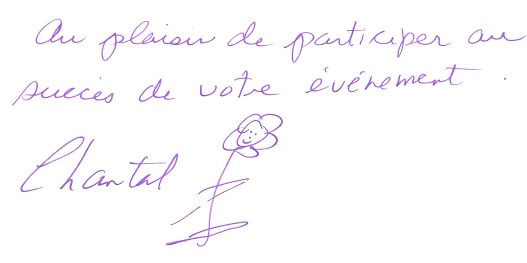 Au plaisir de participer au
succès de votre événement.
Chantal